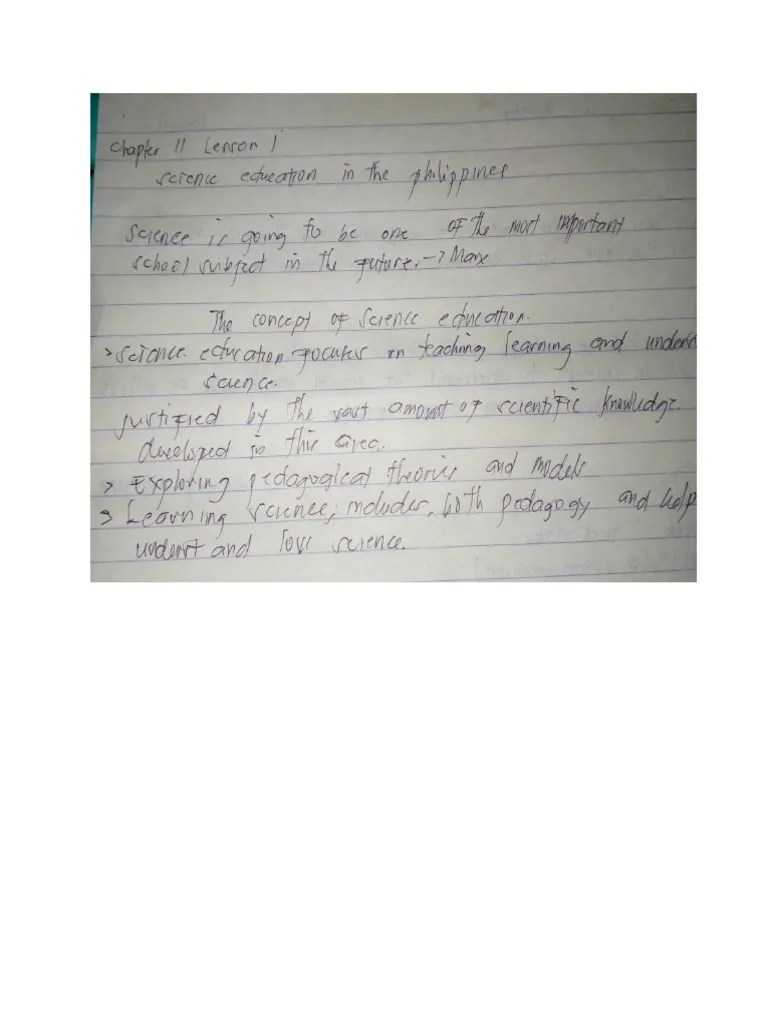 Chapter 11 Lesson 1
science education in the philippines
Science is going to be one of the most important
school subject in the future. -> Marx
The concept of science education.
> science education focuses on teaching learning and underst
science.
justified by the vast amount of scientific knowledge.
developed in this area.
> Exploring pedagogical theories and models
> Learning science; includes, both pedagogy and help
underst and love science.